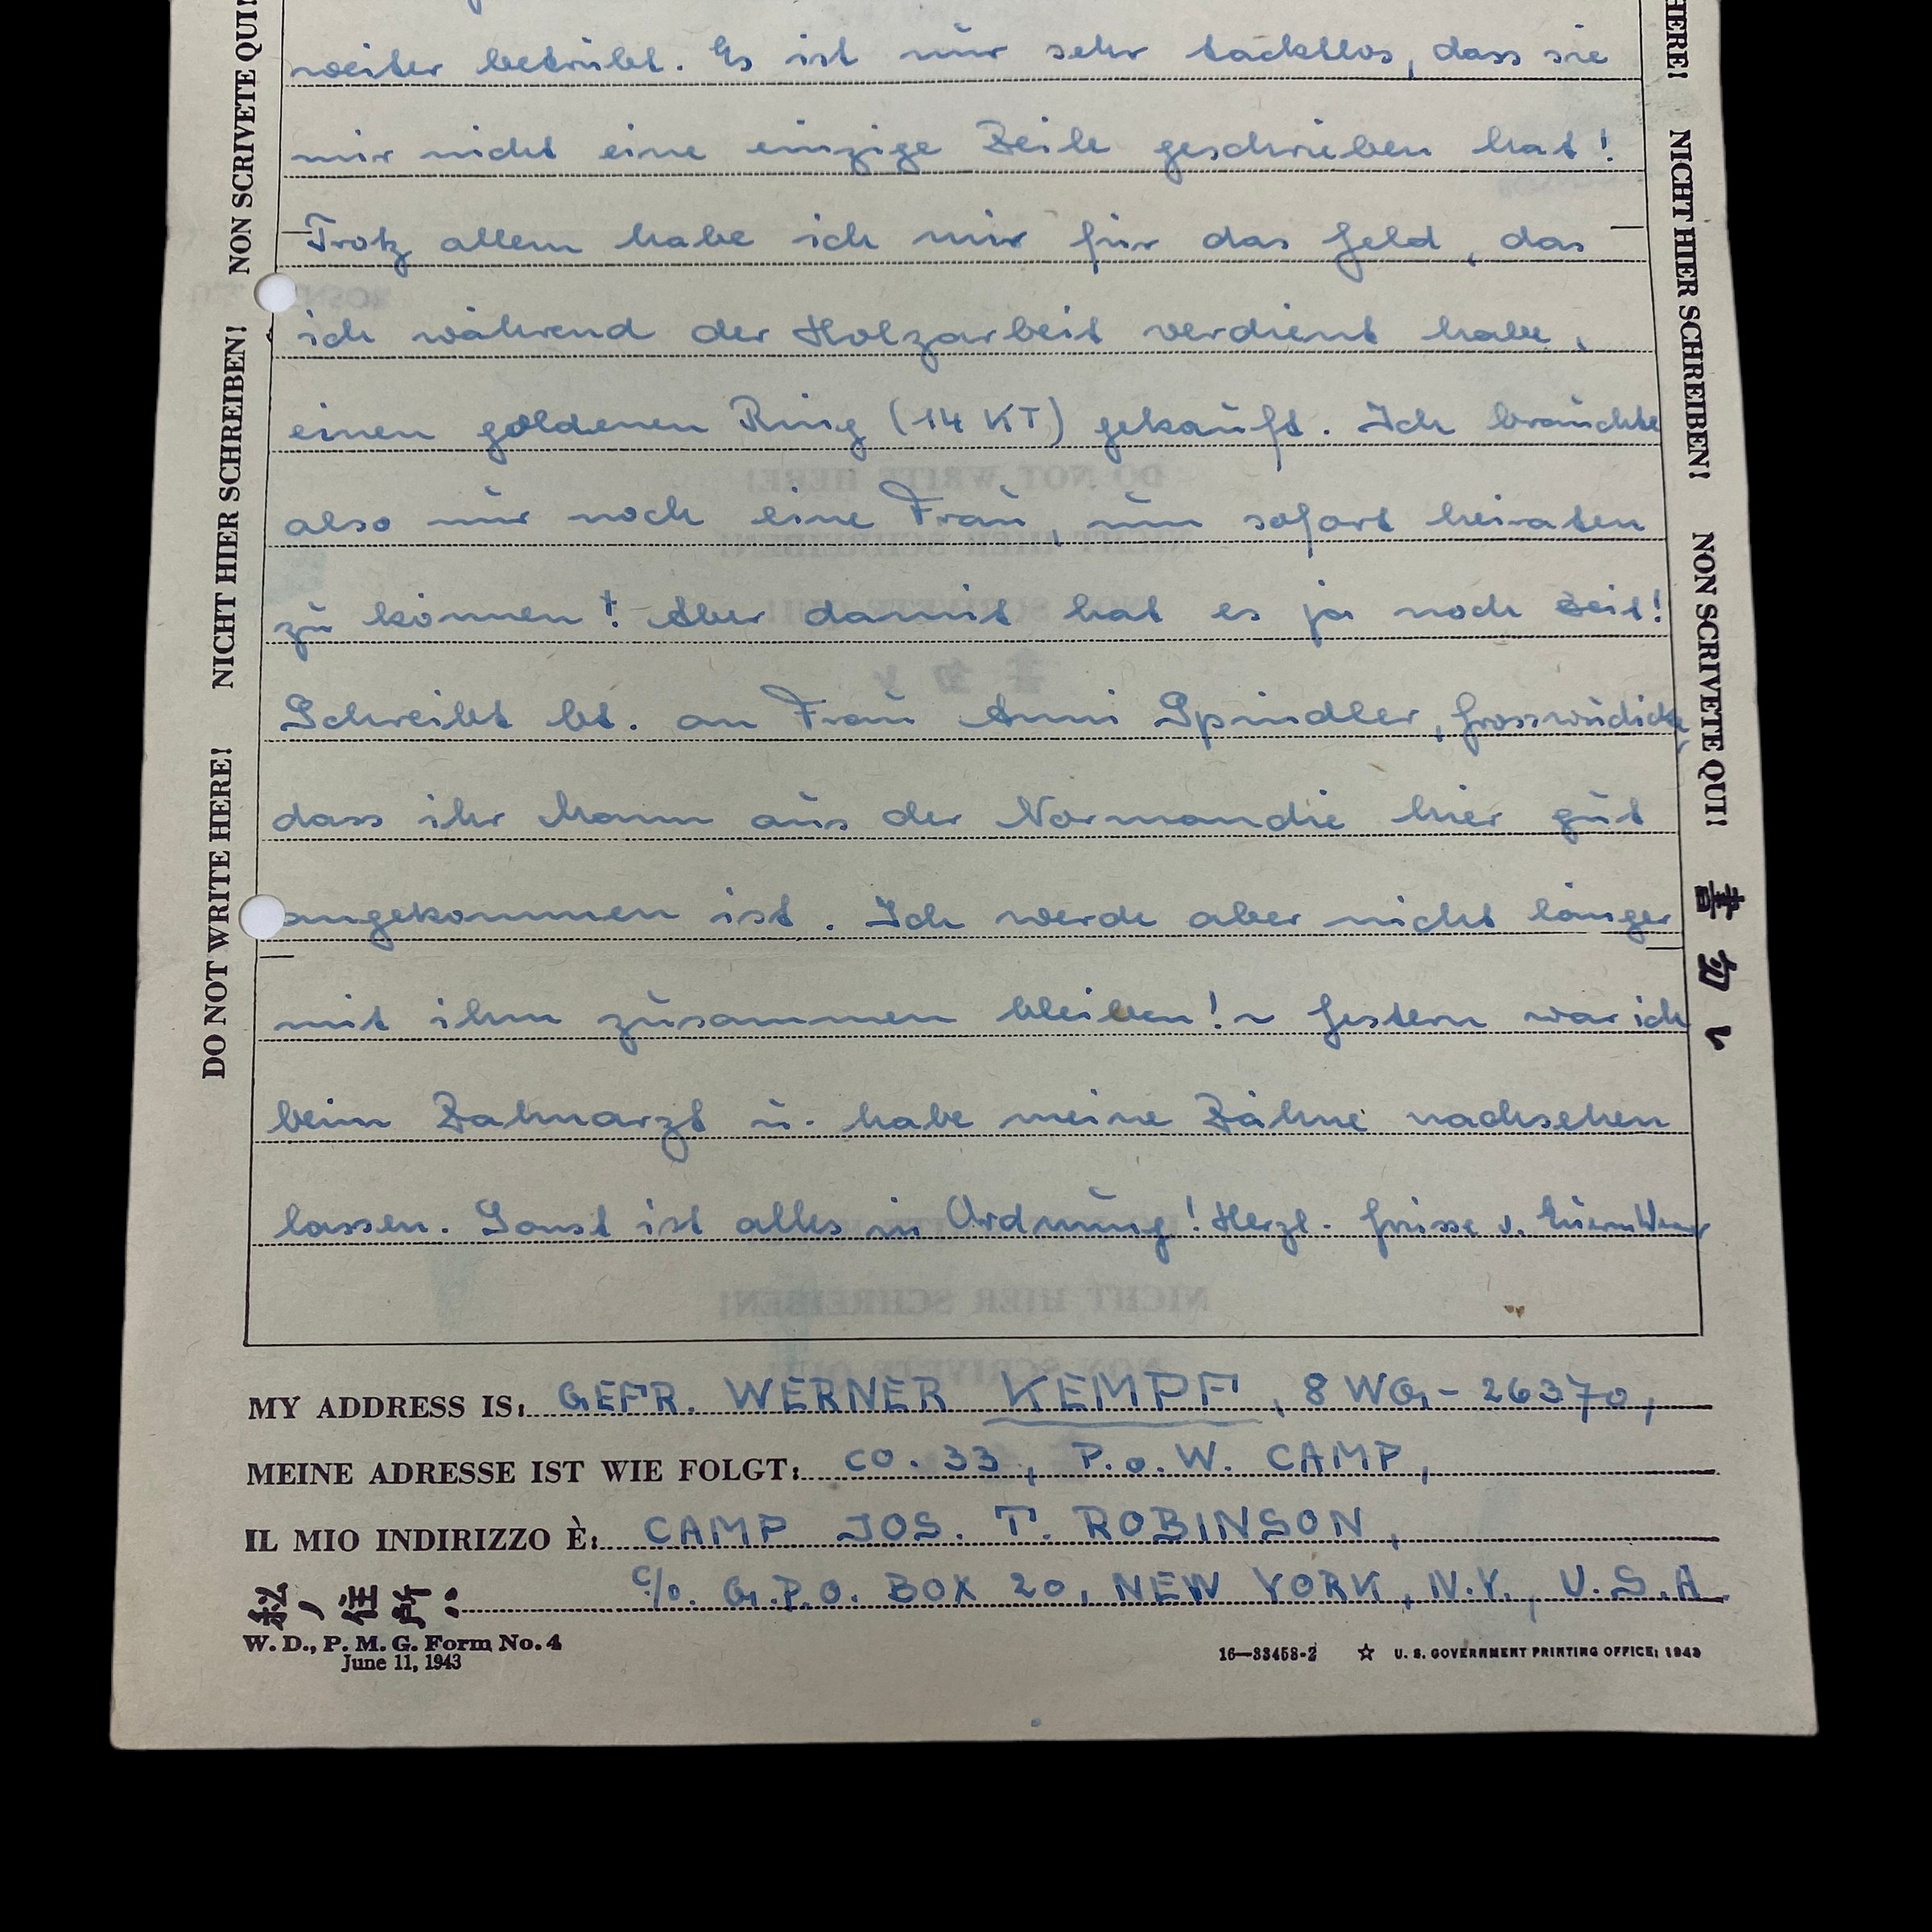 weiter betrübt. Es ist nur sehr tacktlos, dass sie
mir nicht eine einzige Zeile geschrieben hat!
Trotz allem habe ich mir für das Geld, das
ich während der Holzarbeit verdient habe,
einen goldenen Ring (14 KT) gekauft. Ich brauchte
also nur noch eine Frau, um sofort heiraten
zu können! - Aber damit hat es ja noch Zeit!
Schreibt bt. an Frau Anni Spindler, Grosswudicke,
dass ihr Mann aus der Normandie hier gut
angekommen ist. Ich werde aber nicht länger
mit ihm zusammen bleiben! ~ Gestern war ich
beim Zahnarzt u. habe meine Zähne nachsehen
lassen. Sonst ist alles in Ordnung! Herzl. Grüsse v. Euerm Werner
MY ADDRESS IS: GEFR. WERNER KEMPF, 8 WG - 26370,
MEINE ADRESSE IST WIE FOLGT: CO. 33, P.o.W. CAMP,
IL MIO INDIRIZZO È: CAMP JOS. T. ROBINSON,
私ノ住所: c/o. G.P.O. BOX 20, NEW YORK, N.Y., U.S.A.
W. D., P. M. G. Form No. 4
June 11, 1943
16—33458-2 ☆ U. S. GOVERNMENT PRINTING OFFICE: 1943
DO NOT WRITE HERE! NICHT HIER SCHREIBEN! NON SCRIVETE QUI!
HERE! NICHT HIER SCHREIBEN! NON SCRIVETE QUI! 書クナ
DO NOT WRITE HERE!
NICHT HIER SCHREIBEN!
NICHT HIER SCHREIBEN!
NON SCRIVETE QUI!